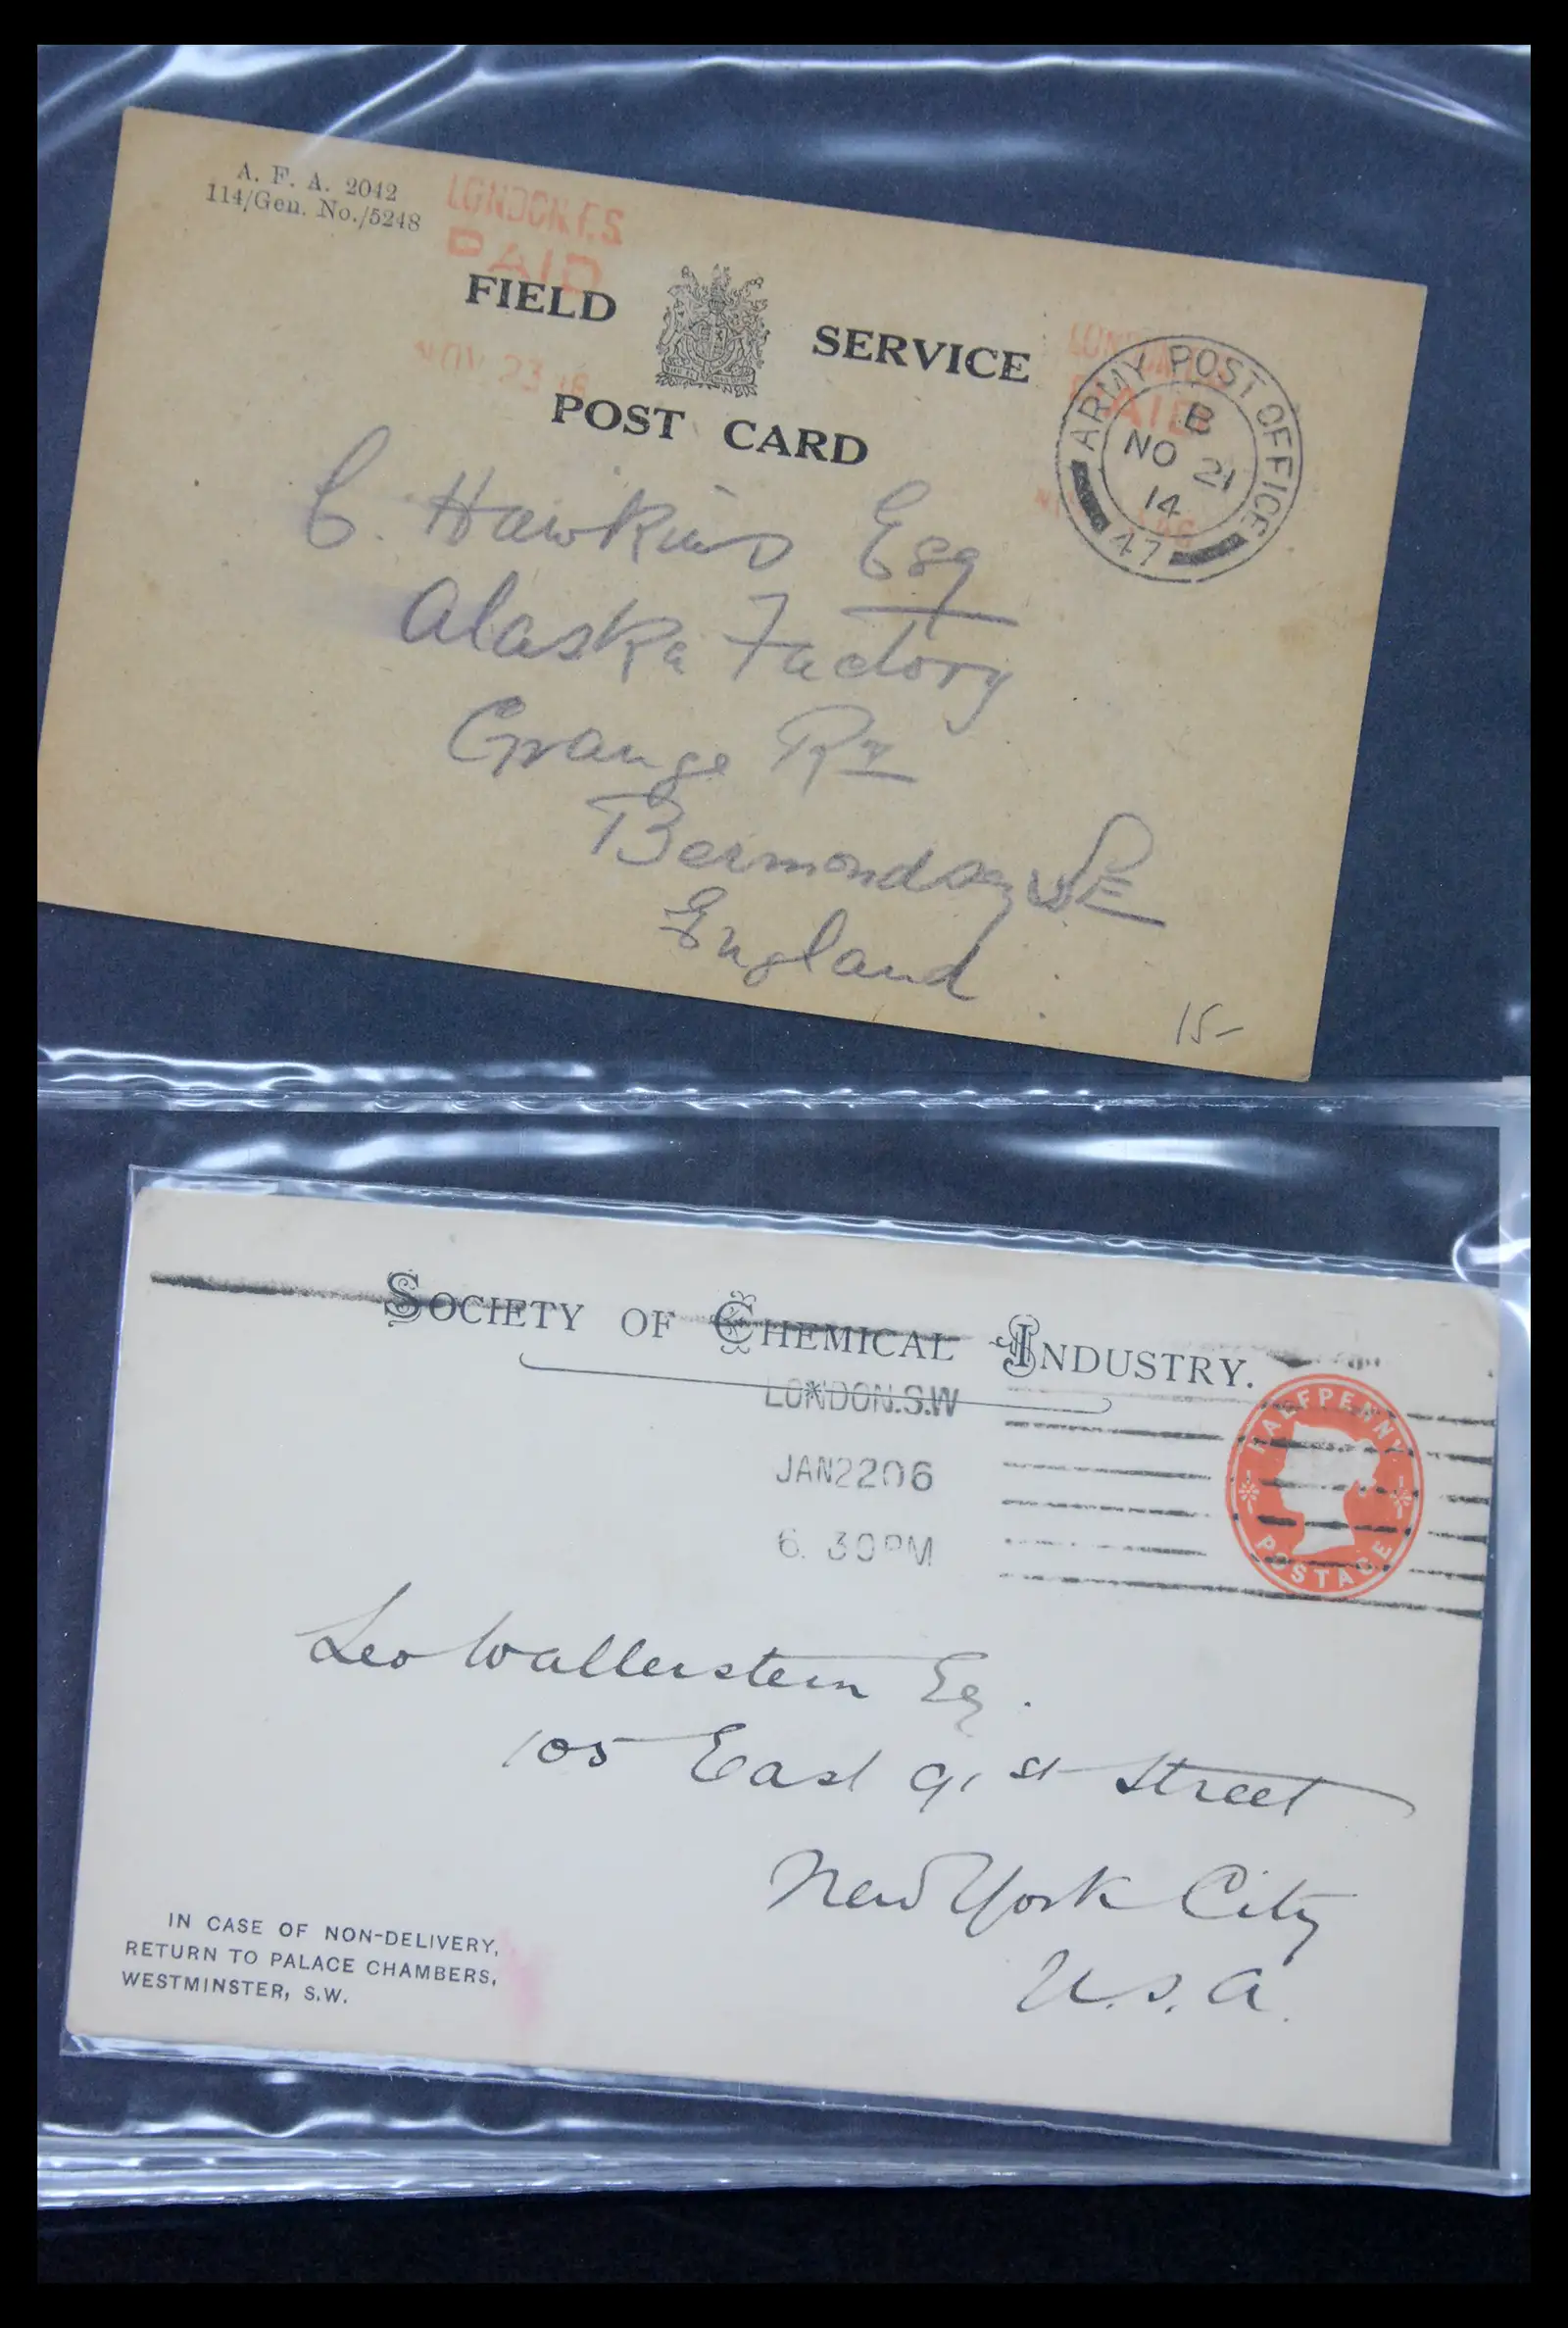 A. F. A. 2042
114/Gen. No./5248
LONDON.F.S.
PAID
NOV 23
FIELD SERVICE
POST CARD
PAID
ARMY POST OFFICE
B
NO 21
14
47
C. Hawkins Esq
Alaska Factory
Grange Rd
Bermondsey SE
England
15-
SOCIETY OF CHEMICAL INDUSTRY.
LONDON.S.W
JAN2206
6. 30PM
HALFPENNY
POSTAGE
Leo Wallerstein Eq.
105 East 91st Street
New York City
U.S.A.
IN CASE OF NON-DELIVERY,
RETURN TO PALACE CHAMBERS,
WESTMINSTER, S.W.